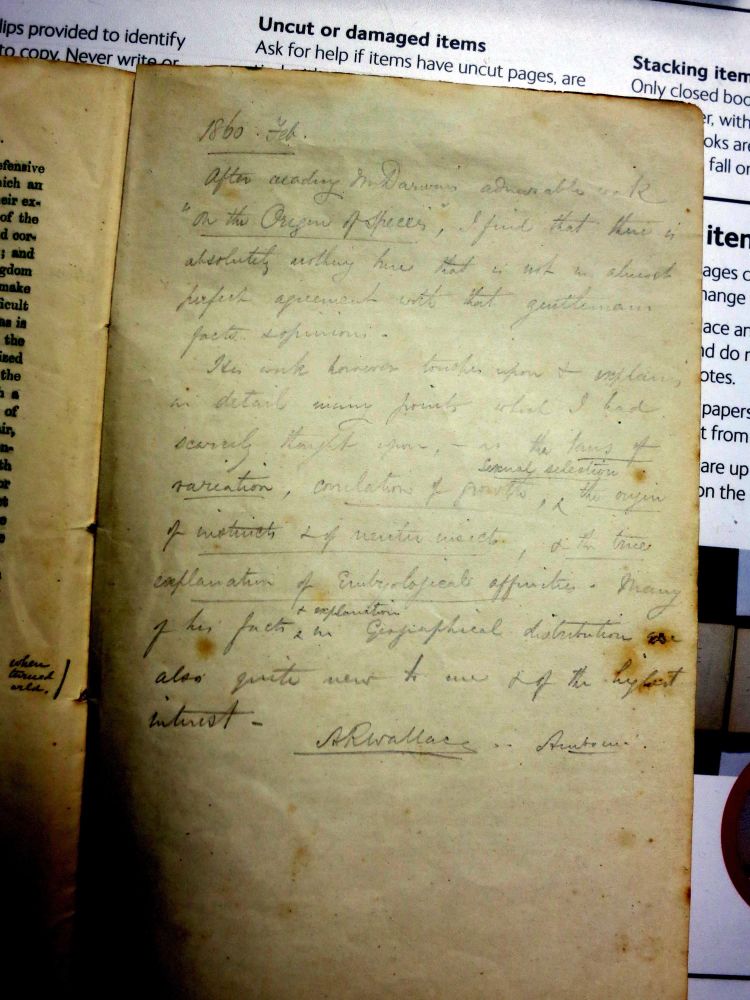 lips provided to identify
to copy. Never write or
Uncut or damaged items
Ask for help if items have uncut pages, are
Stacking item
Only closed boo
er, with
oks are
fall or
item
ages c
hange
ace an
nd do n
otes.
papers
t from
are up
on the
efensive
hich an
eir ex-
of the
d cor-
; and
gdom
make
ficult
as is
the
ized
the
h a
of
air,
on-
th
or
st
e
e
n
when
turned
wild.
1860. Feb.
After reading Mr Darwin's admirable work
"On the Origin of Species", I find that there is
absolutely nothing here that is not in almost
perfect agreement with that gentlemans
facts & opinions.
His work however touches upon & explains
in detail many points which I had
scarcely thought upon, - as the laws of
variation, correlation of growth, sexual selection, & the origin
of instincts & of neuter insects, & the true
explanation of Embryological affinities. Many
of his facts & explanations in Geographical distribution are
also quite new to me & of the highest
interest -
ARWallace .. Amboina.